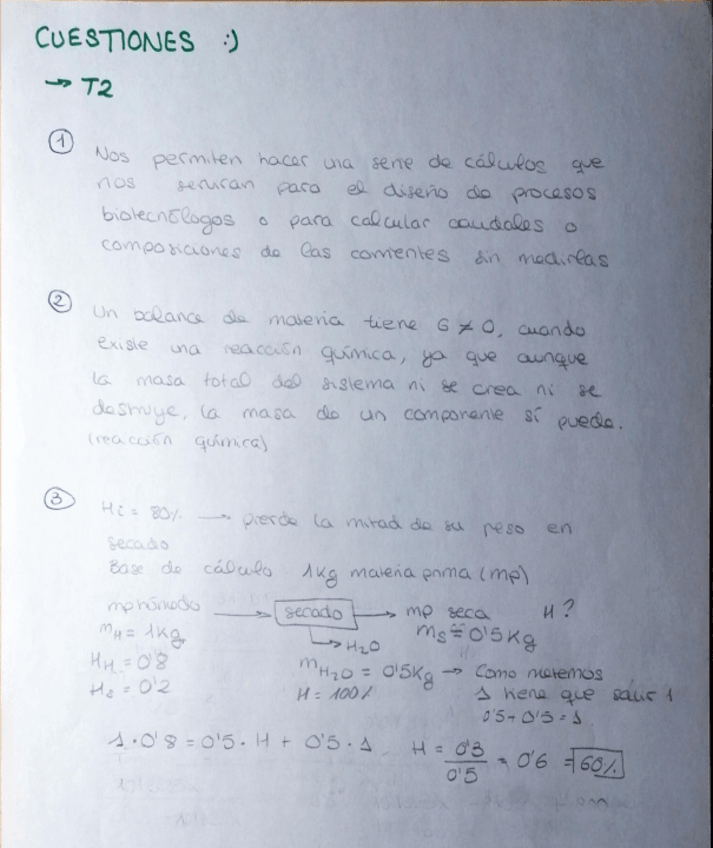 CUESTIONES :)
→ T2
① Nos permiten hacer una serie de cálculos que
nos serviran para el diseño de procesos
biotecnólogos o para calcular caudales o
composiciones de las corrientes sin medirlas
② Un balance de materia tiene G ≠ 0, cuando
existe una reacción química, ya que aunque
la masa total del sistema ni se crea ni se
destruye, la masa de un componente sí puede.
(reacción química)
③ Hi = 80% → pierde la mitad de su peso en
secado
Base de cálculo 1kg materia prima (mp)
mp húmeda → secado → mp seca H?
mH = 1kg → H2O mS = 0'5kg
HH = 0'8 mH2O = 0'5kg → Como metemos
Hs = 0'2 H = 100% 1 tiene que salir 1
0'5 + 0'5 = 1
1·0'8 = 0'5·H + 0'5·1 H = 0'3/0'5 = 0'6 = 60%